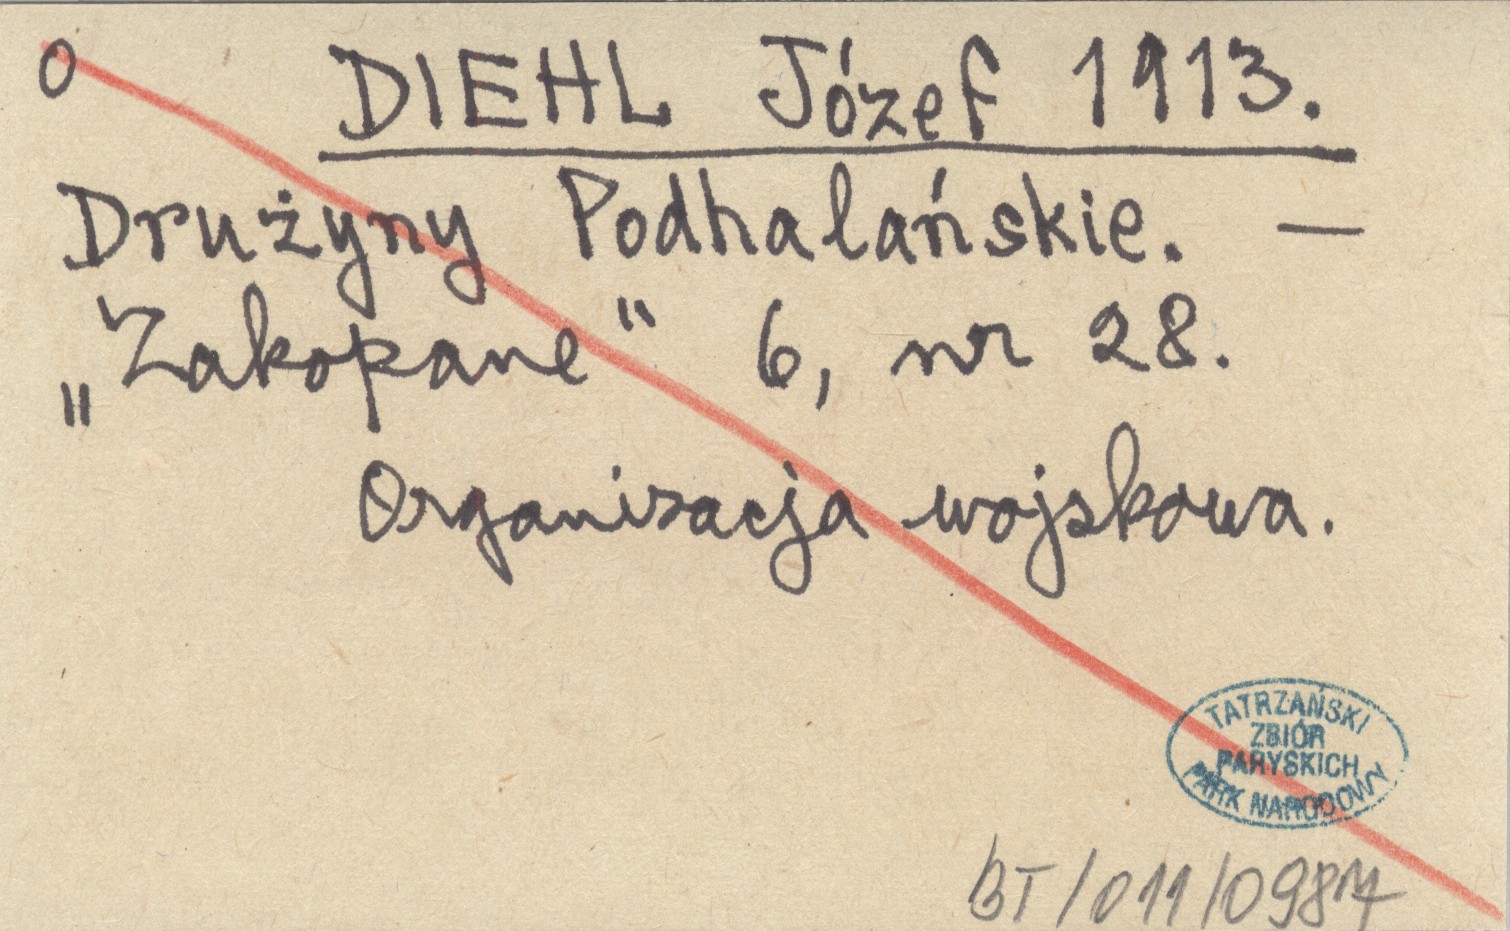 O DIEHL Józef 1913.
Drużyny Podhalańskie. —
„Zakopane" 6, nr 28.
Organizacja wojskowa.
TATRZAŃSKI
ZBIÓR
PARYSKICH
PARK NARODOWY
BT/011/0987